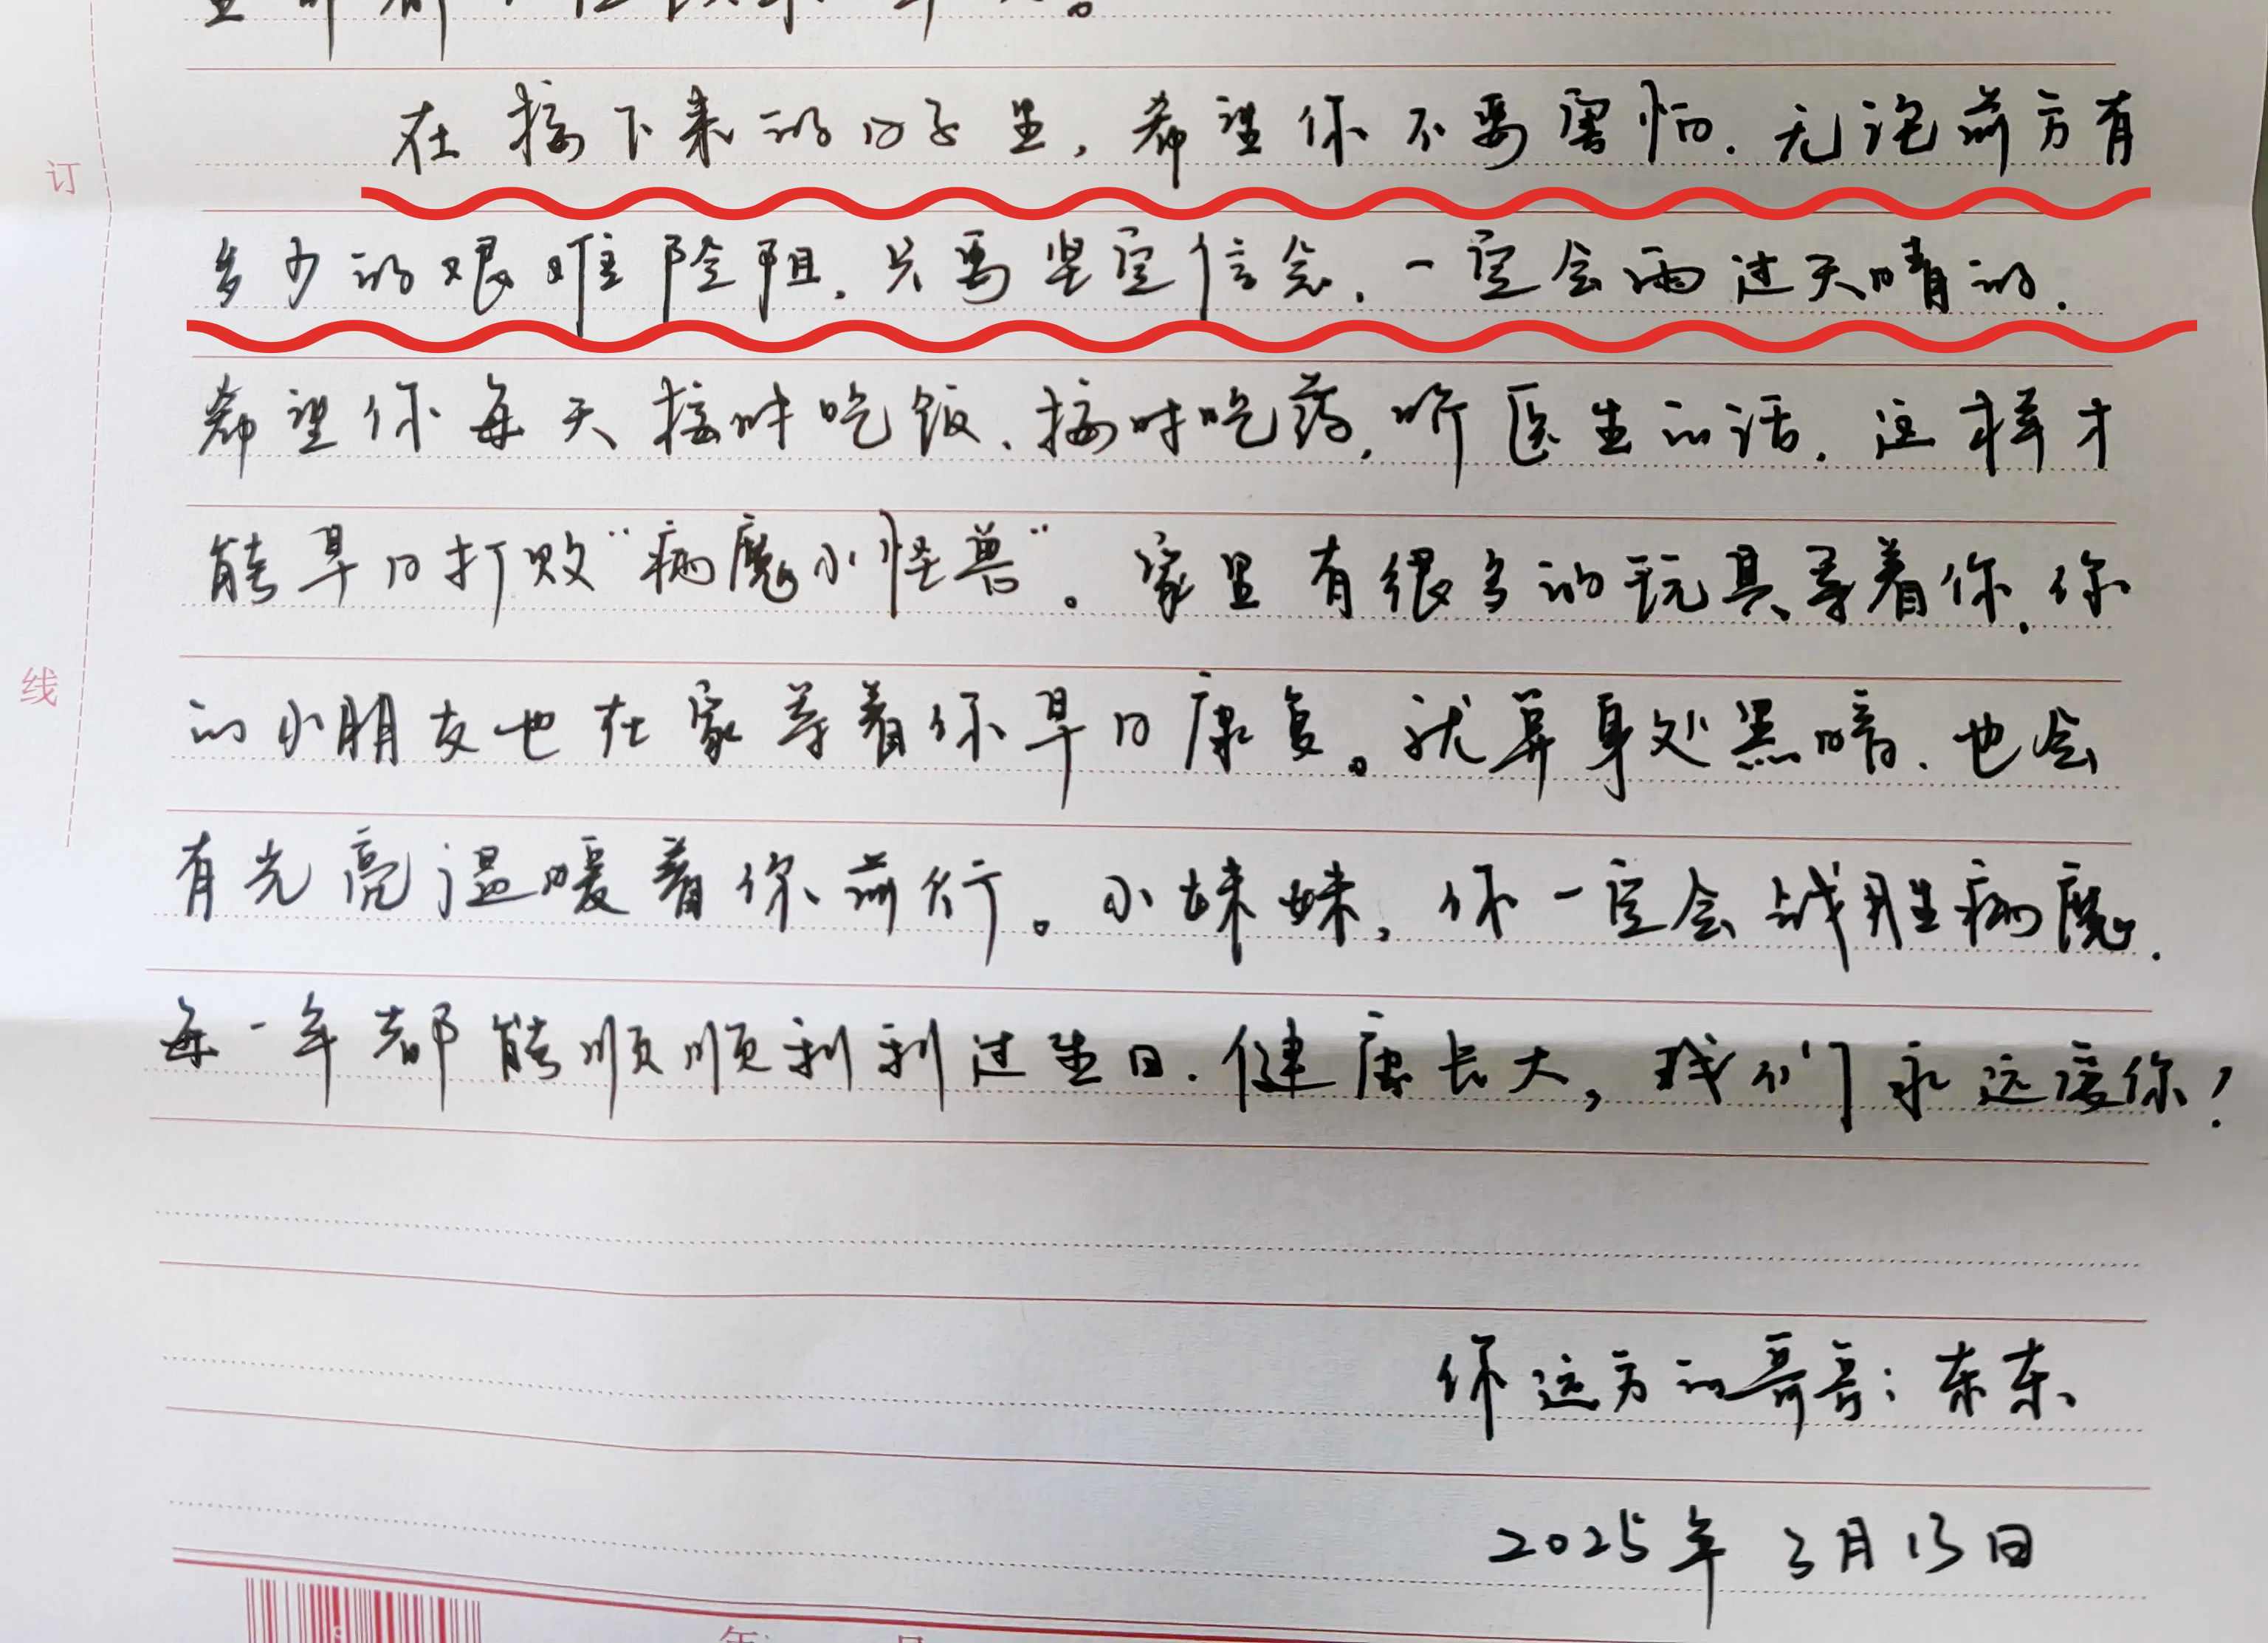 在接下来的日子里，希望你不要害怕.无论前方有
多少的艰难险阻.只要坚定信念.一定会雨过天晴的.
希望你每天按时吃饭、按时吃药,听医生的话.这样才
能早日打败“病魔小怪兽”。家里有很多的玩具等着你.你
的小朋友也在家等着你早日康复。就算身处黑暗.也会
有光亮温暖着你前行。小妹妹,你一定会战胜病魔.
每一年都能顺顺利利过生日.健康长大,我们永远爱你!
订
线
你远方的哥哥:东东
2025年3月13日